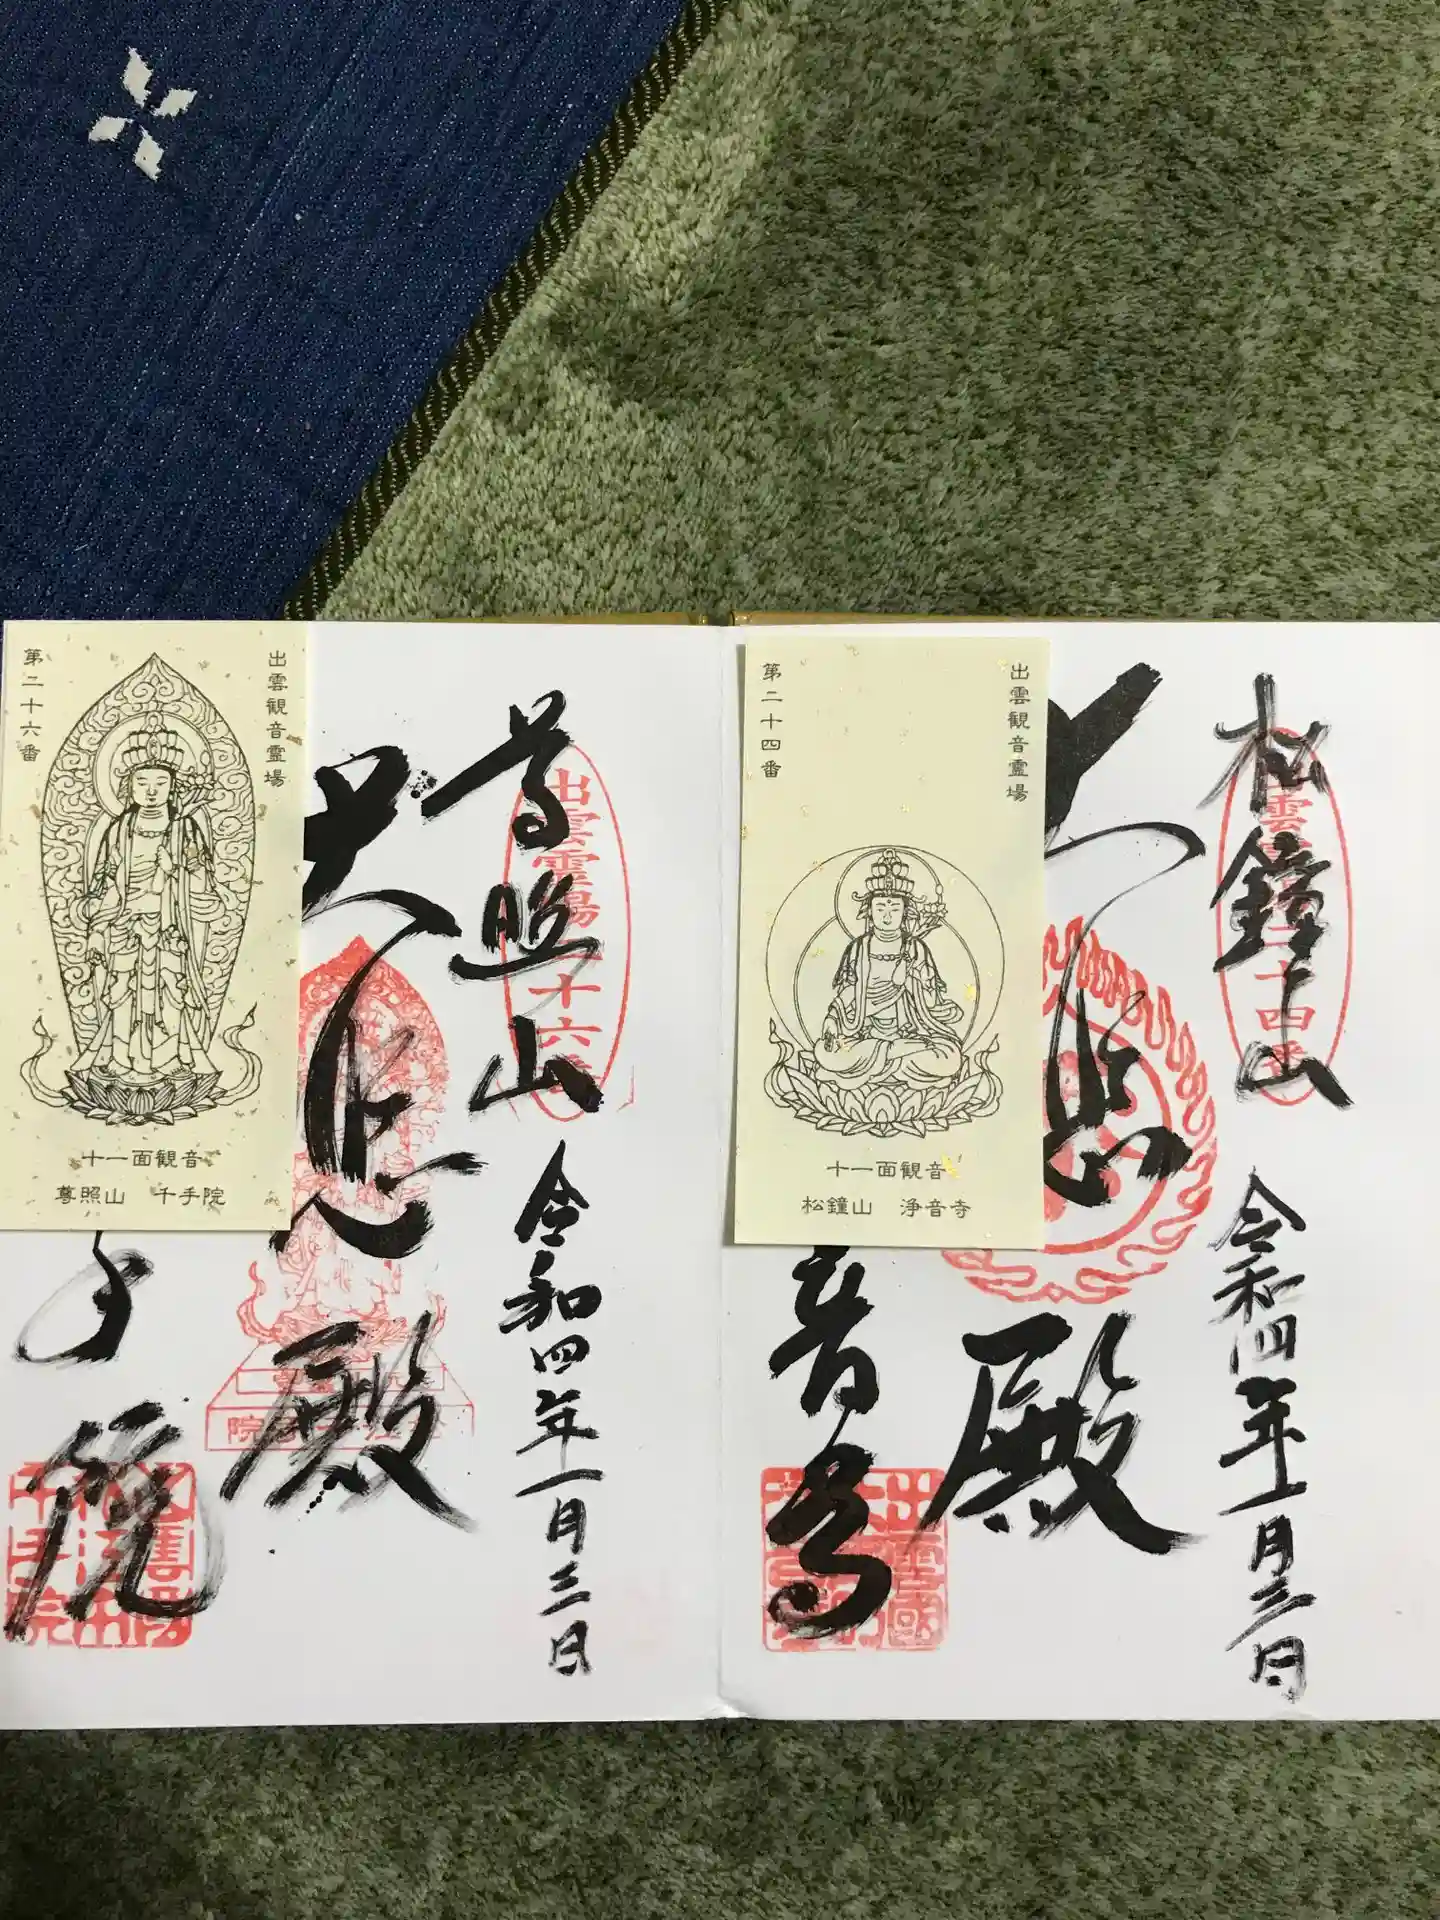 松鐘山
令和四年一月三日
大悲
殿
音寺
出雲観音霊場
第二十四番
十一面観音
松鐘山 浄音寺
尊照山
出雲霊場
十六
令和四年一月三日
大悲
殿
手院
千手院
出雲観音霊場
第二十六番
十一面観音
尊照山 千手院